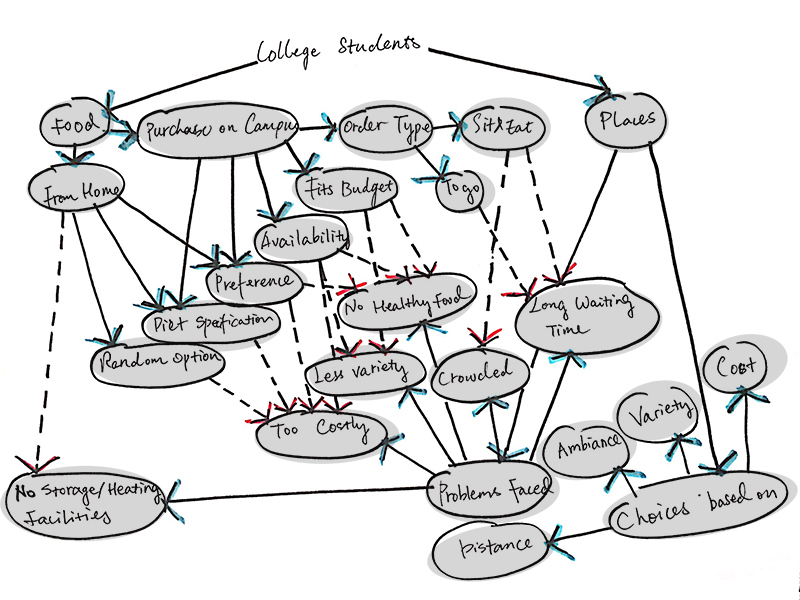 College Students
Food
Purchase on Campus
Order Type
Sit&Eat
Places
From Home
Fits Budget
To go
Availability
Preference
No Healthy Food
Long Waiting
Time
Diet Specification
Random Option
Less Variety
Crowded
Cost
Variety
Too Costly
Ambiance
No Storage/Heating
Facilities
Problems Faced
Choices based on
Distance